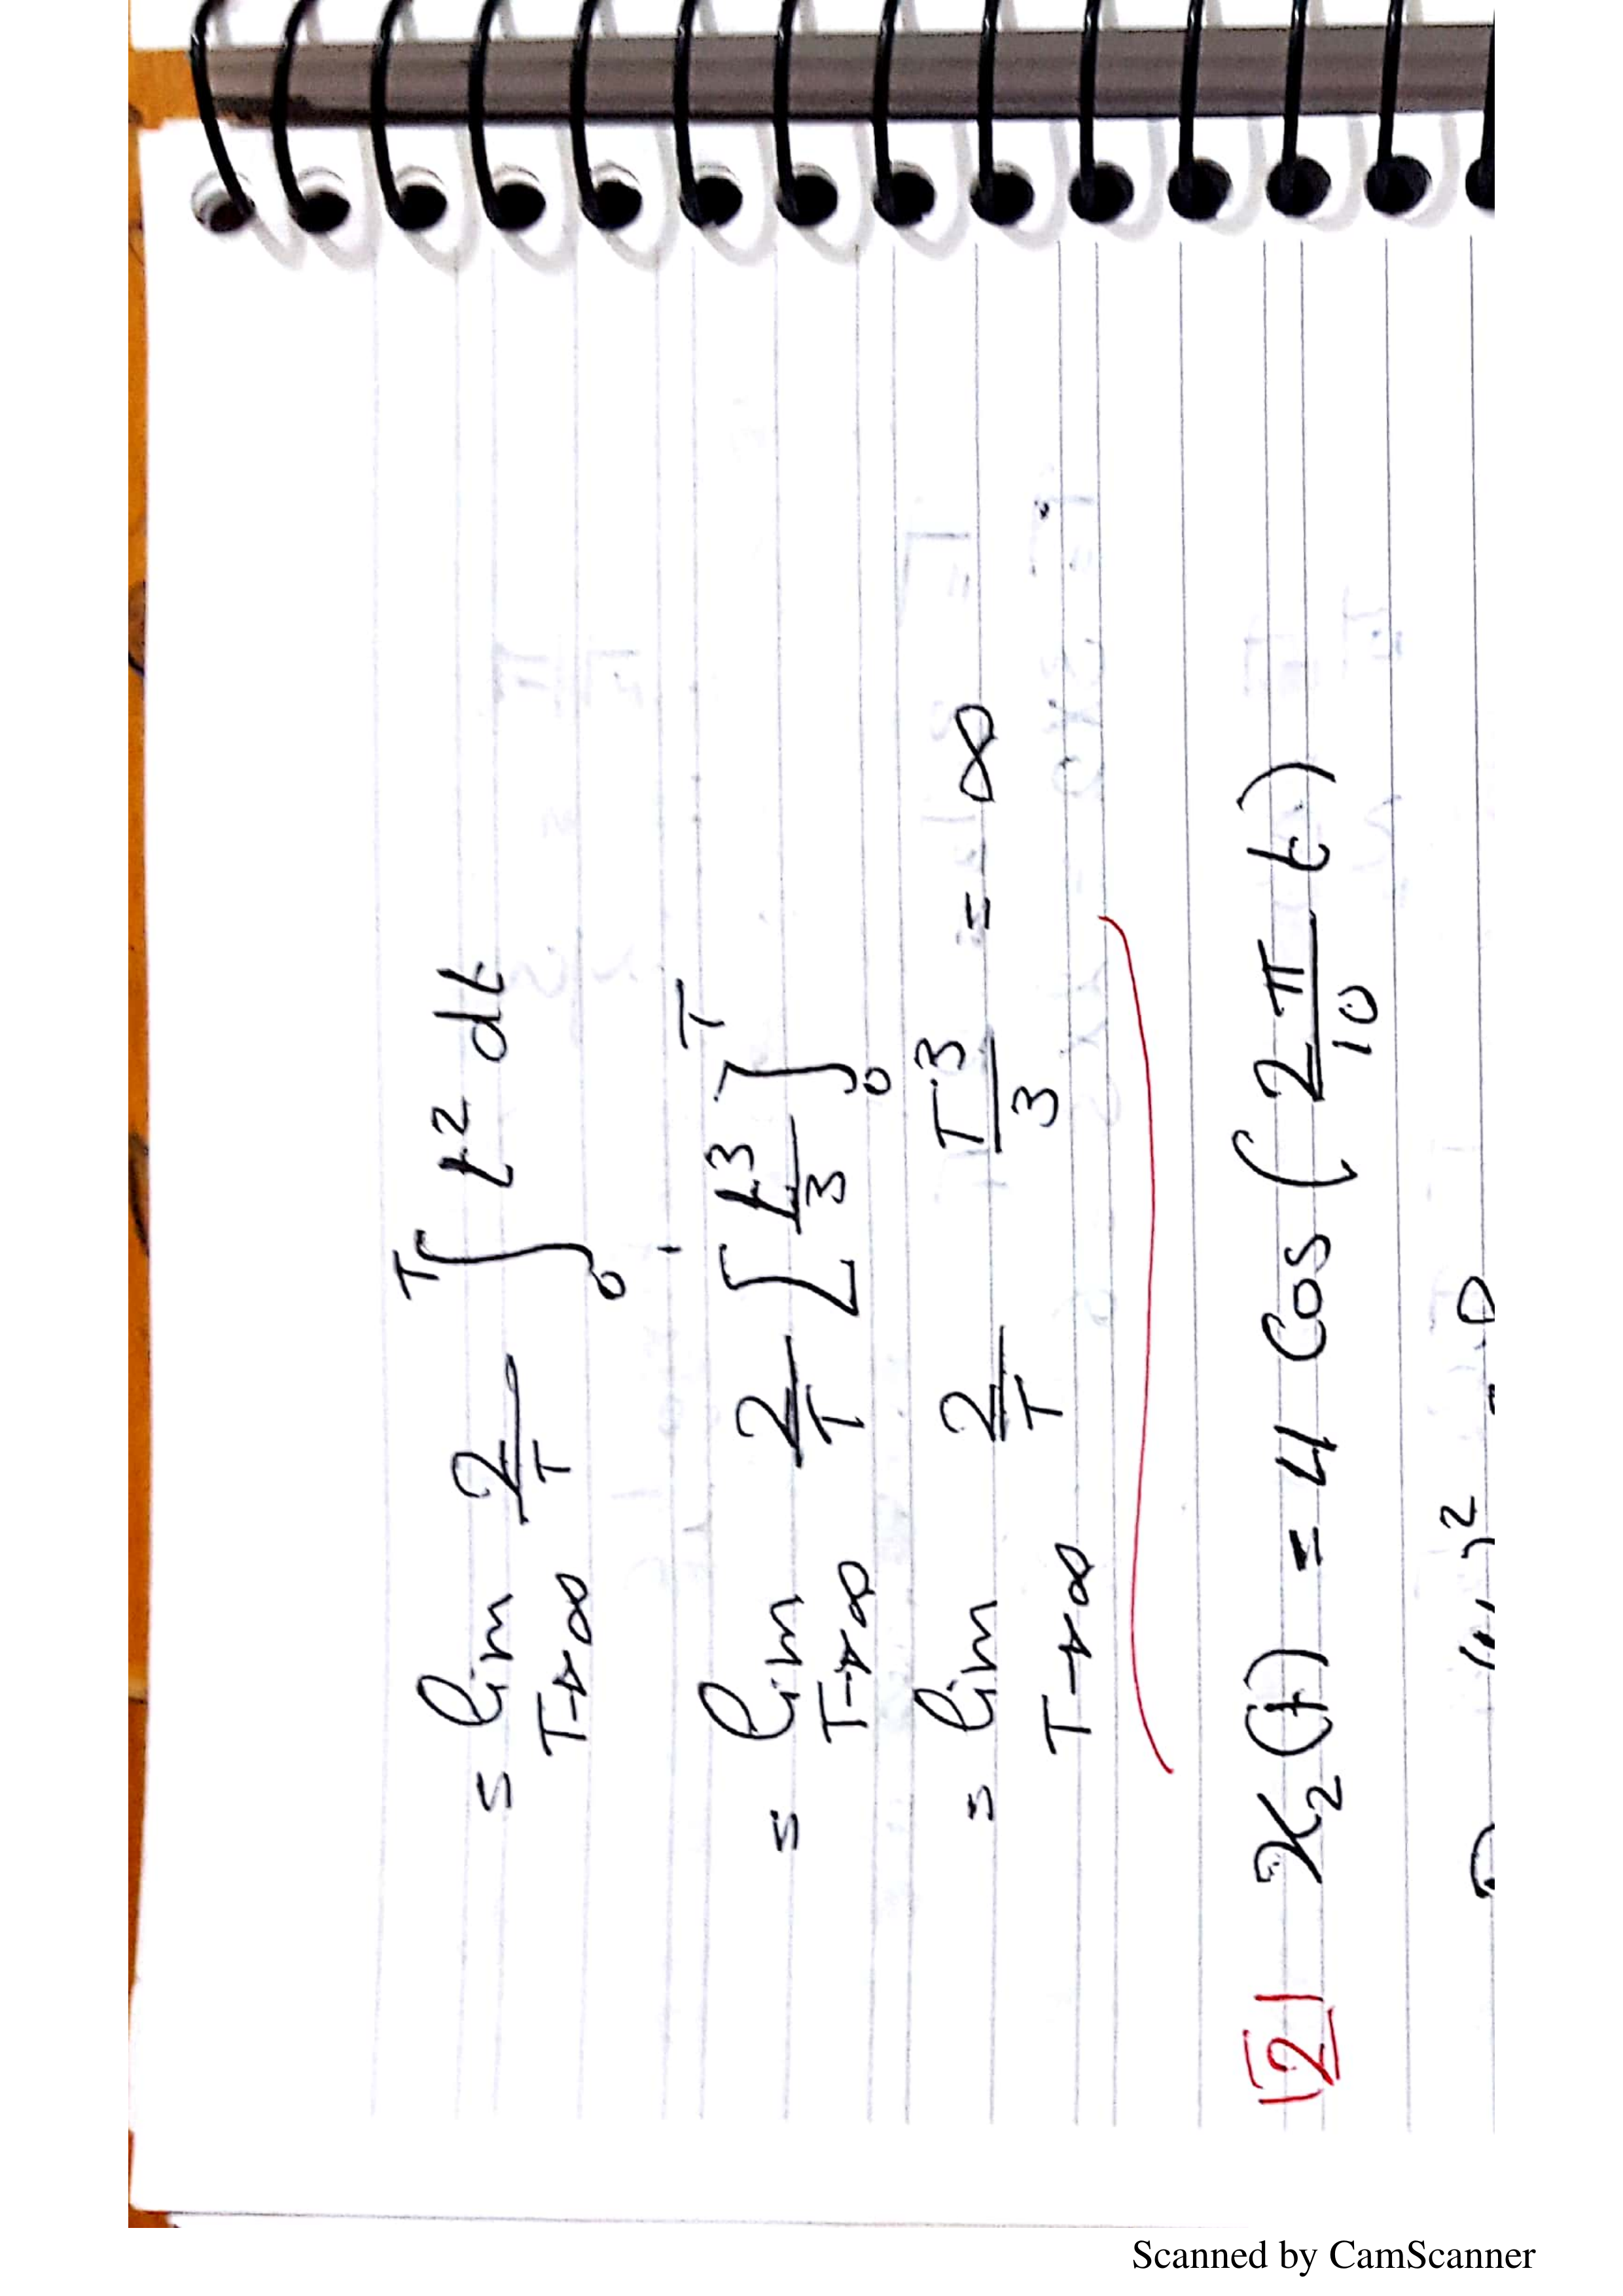 = lim T→∞ 2/T ∫₀ᵀ t² dt
= lim T→∞ 2/T [t³/3]₀ᵀ
= lim T→∞ 2/T T³/3 = ∞
[2] x₂(t) = 4 Cos (2π/10 t)
Scanned by CamScanner